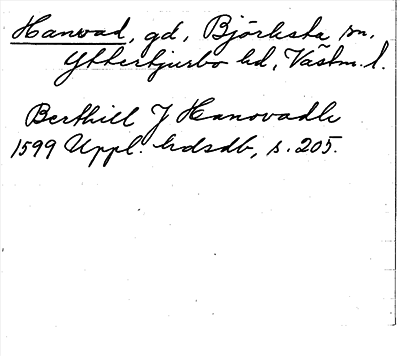 Hanvad, gd, Björksta sn,
Yttertjurbo hd, Västm. l.
Berthill J Hanovadh
1599 Uppl. hdsdb, s. 205.